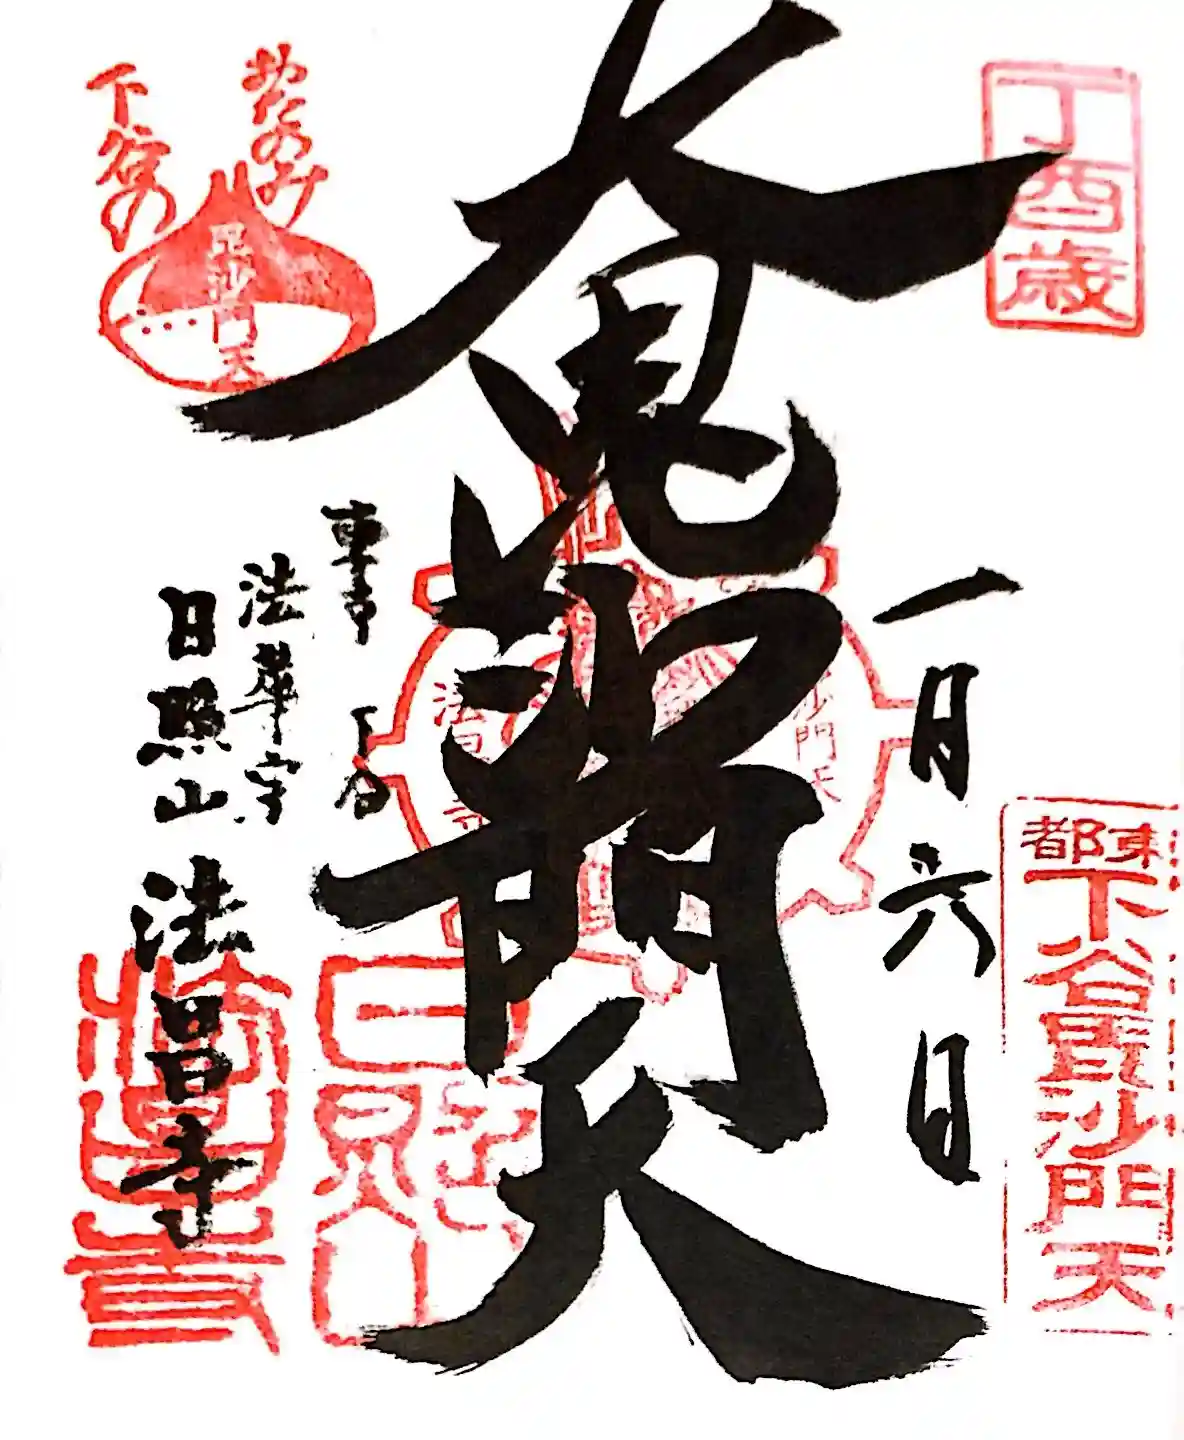 丁酉歳
一月六日
東都
下谷毘沙門天
毘沙門天
下谷の
毘沙門天
沙門天
法昌寺
日照山
東京 下谷
法華宗
日照山 法昌寺
法昌寺